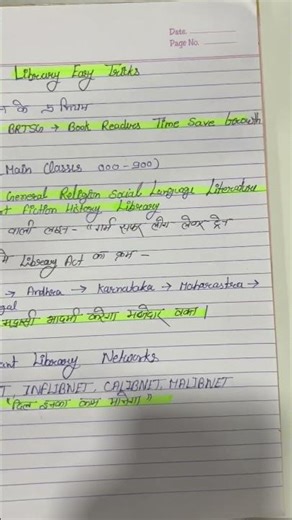 Date
Page No.
Library Easy Tricks
के 5 नियम
BRTSG → Book Readers Time Save Growth
Main Classes 000-900)
General Religion Social Language Literature
Fiction History Library
वाली लाइन -
Library Act का क्रम -
→ Andhra → Karnataka → Maharastra →
gal
मद्रासी आदमी करेगा मजेदार वक्त।
ant Library Networks
T, INFLIBNET, CALIBNET, MALIBNET
"दिल इनका कम मचिगा"